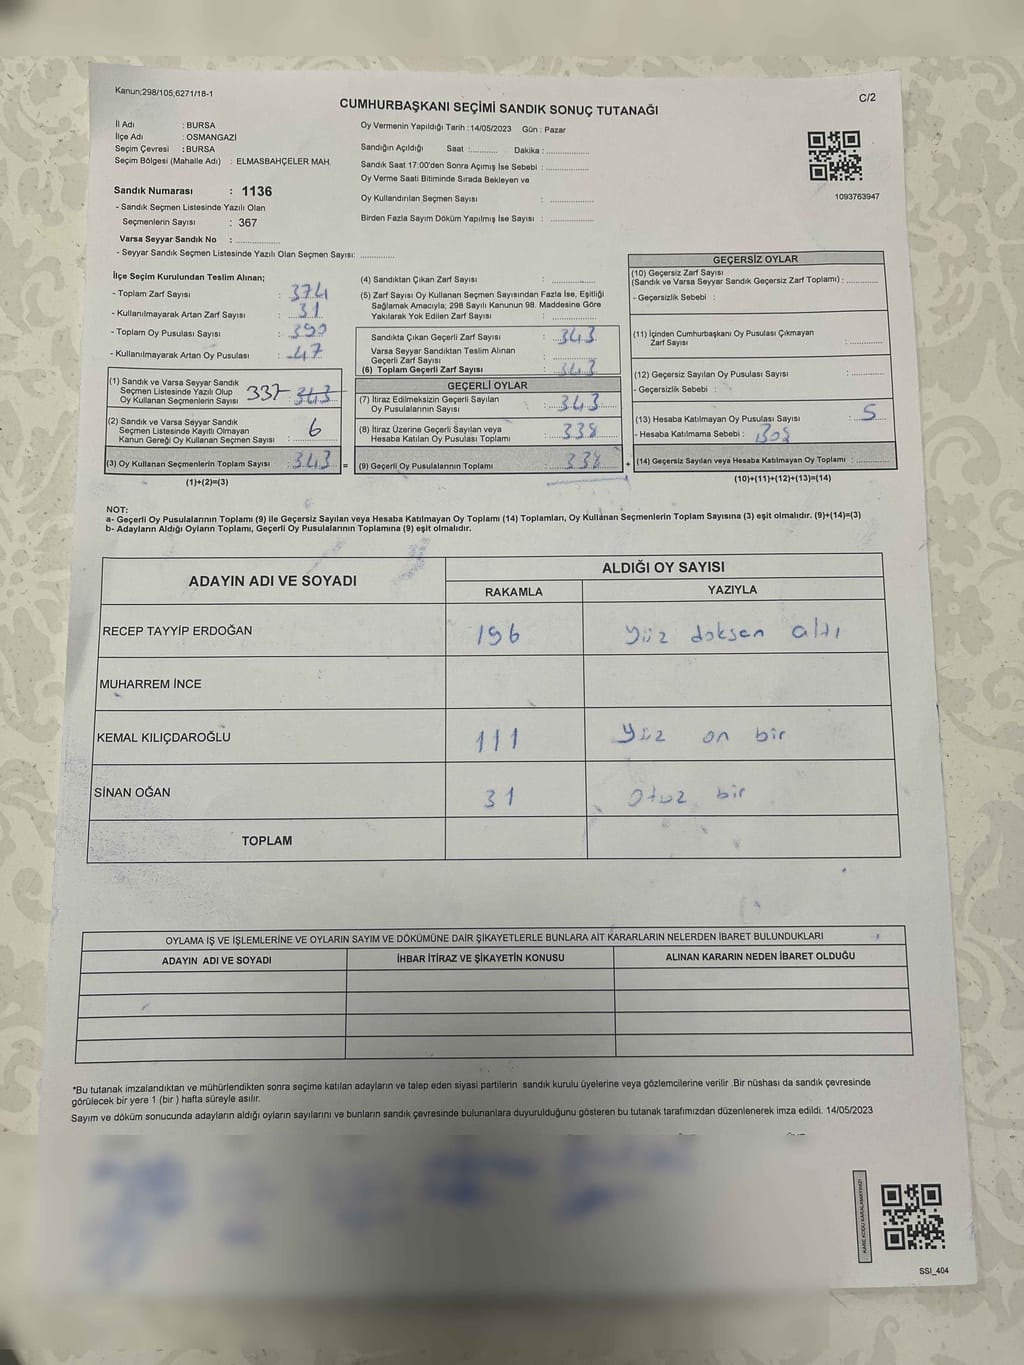 Kanun;298/105,6271/18-1
C/2
CUMHURBAŞKANI SEÇİMİ SANDIK SONUÇ TUTANAĞI
İl Adı : BURSA
İlçe Adı : OSMANGAZİ
Seçim Çevresi : BURSA
Seçim Bölgesi (Mahalle Adı) : ELMASBAHÇELER MAH.
Sandık Numarası : 1136
- Sandık Seçmen Listesinde Yazılı Olan
Seçmenlerin Sayısı : 367
Varsa Seyyar Sandık No : ..............
- Seyyar Sandık Seçmen Listesinde Yazılı Olan Seçmen Sayısı: ............
Oy Vermenin Yapıldığı Tarih :14/05/2023 Gün : Pazar
Sandığın Açıldığı Saat :......... Dakika : ..............
Sandık Saat 17:00'den Sonra Açımış İse Sebebi : ..............
Oy Verme Saati Bitiminde Sırada Bekleyen ve
Oy Kullandırılan Seçmen Sayısı : ..............
Birden Fazla Sayım Döküm Yapılmış İse Sayısı : ..............
1093763947
İlçe Seçim Kurulundan Teslim Alınan;
- Toplam Zarf Sayısı : 374
- Kullanılmayarak Artan Zarf Sayısı : 31
- Toplam Oy Pusulası Sayısı : 390
- Kullanılmayarak Artan Oy Pusulası : 47
(1) Sandık ve Varsa Seyyar Sandık
Seçmen Listesinde Yazılı Olup
Oy Kullanan Seçmenlerin Sayısı 337 343
(2) Sandık ve Varsa Seyyar Sandık
Seçmen Listesinde Kayıtlı Olmayan
Kanun Gereği Oy Kullanan Seçmen Sayısı : 6
(3) Oy Kullanan Seçmenlerin Toplam Sayısı : 343 =
(1)+(2)=(3)
(4) Sandıktan Çıkan Zarf Sayısı : ..............
(5) Zarf Sayısı Oy Kullanan Seçmen Sayısından Fazla İse, Eşitliği
Sağlamak Amacıyla; 298 Sayılı Kanunun 98. Maddesine Göre
Yakılarak Yok Edilen Zarf Sayısı : ..............
Sandıkta Çıkan Geçerli Zarf Sayısı : 343
Varsa Seyyar Sandıktan Teslim Alınan
Geçerli Zarf Sayısı :
(6) Toplam Geçerli Zarf Sayısı : 343
GEÇERLİ OYLAR
(7) İtiraz Edilmeksizin Geçerli Sayılan
Oy Pusulalarının Sayısı : 343
(8) İtiraz Üzerine Geçerli Sayılan veya
Hesaba Katılan Oy Pusulası Toplamı : 338
(9) Geçerli Oy Pusulalarının Toplamı : 338 +
GEÇERSİZ OYLAR
(10) Geçersiz Zarf Sayısı
(Sandık ve Varsa Seyyar Sandık Geçersiz Zarf Toplamı) : .........
- Geçersizlik Sebebi :
(11) İçinden Cumhurbaşkanı Oy Pusulası Çıkmayan
Zarf Sayısı : ............
(12) Geçersiz Sayılan Oy Pusulası Sayısı : ............
- Geçersizlik Sebebi :
(13) Hesaba Katılmayan Oy Pusulası Sayısı : 5
- Hesaba Katılmama Sebebi : Boş
(14) Geçersiz Sayılan veya Hesaba Katılmayan Oy Toplamı : ............
(10)+(11)+(12)+(13)=(14)
NOT:
a- Geçerli Oy Pusulalarının Toplamı (9) ile Geçersiz Sayılan veya Hesaba Katılmayan Oy Toplamı (14) Toplamları, Oy Kullanan Seçmenlerin Toplam Sayısına (3) eşit olmalıdır. (9)+(14)=(3)
b- Adayların Aldığı Oyların Toplamı, Geçerli Oy Pusulalarının Toplamına (9) eşit olmalıdır.
ADAYIN ADI VE SOYADI
ALDIĞI OY SAYISI
RAKAMLA YAZIYLA
RECEP TAYYİP ERDOĞAN 196 Yüz doksan altı
MUHARREM İNCE
KEMAL KILIÇDAROĞLU 111 Yüz on bir
SİNAN OĞAN 31 Otuz bir
TOPLAM
OYLAMA İŞ VE İŞLEMLERİNE VE OYLARIN SAYIM VE DÖKÜMÜNE DAİR ŞİKAYETLERLE BUNLARA AİT KARARLARIN NELERDEN İBARET BULUNDUKLARI
ADAYIN ADI VE SOYADI İHBAR İTİRAZ VE ŞİKAYETİN KONUSU ALINAN KARARIN NEDEN İBARET OLDUĞU
*Bu tutanak imzalandıktan ve mühürlendikten sonra seçime katılan adayların ve talep eden siyasi partilerin sandık kurulu üyelerine veya gözlemcilerine verilir .Bir nüshası da sandık çevresinde
görülecek bir yere 1 (bir ) hafta süreyle asılır.
Sayım ve döküm sonucunda adayların aldığı oyların sayılarını ve bunların sandık çevresinde bulunanlara duyurulduğunu gösteren bu tutanak tarafımızdan düzenlenerek imza edildi. 14/05/2023
KARE KODU KARALAMAYINIZ!
SSI_404